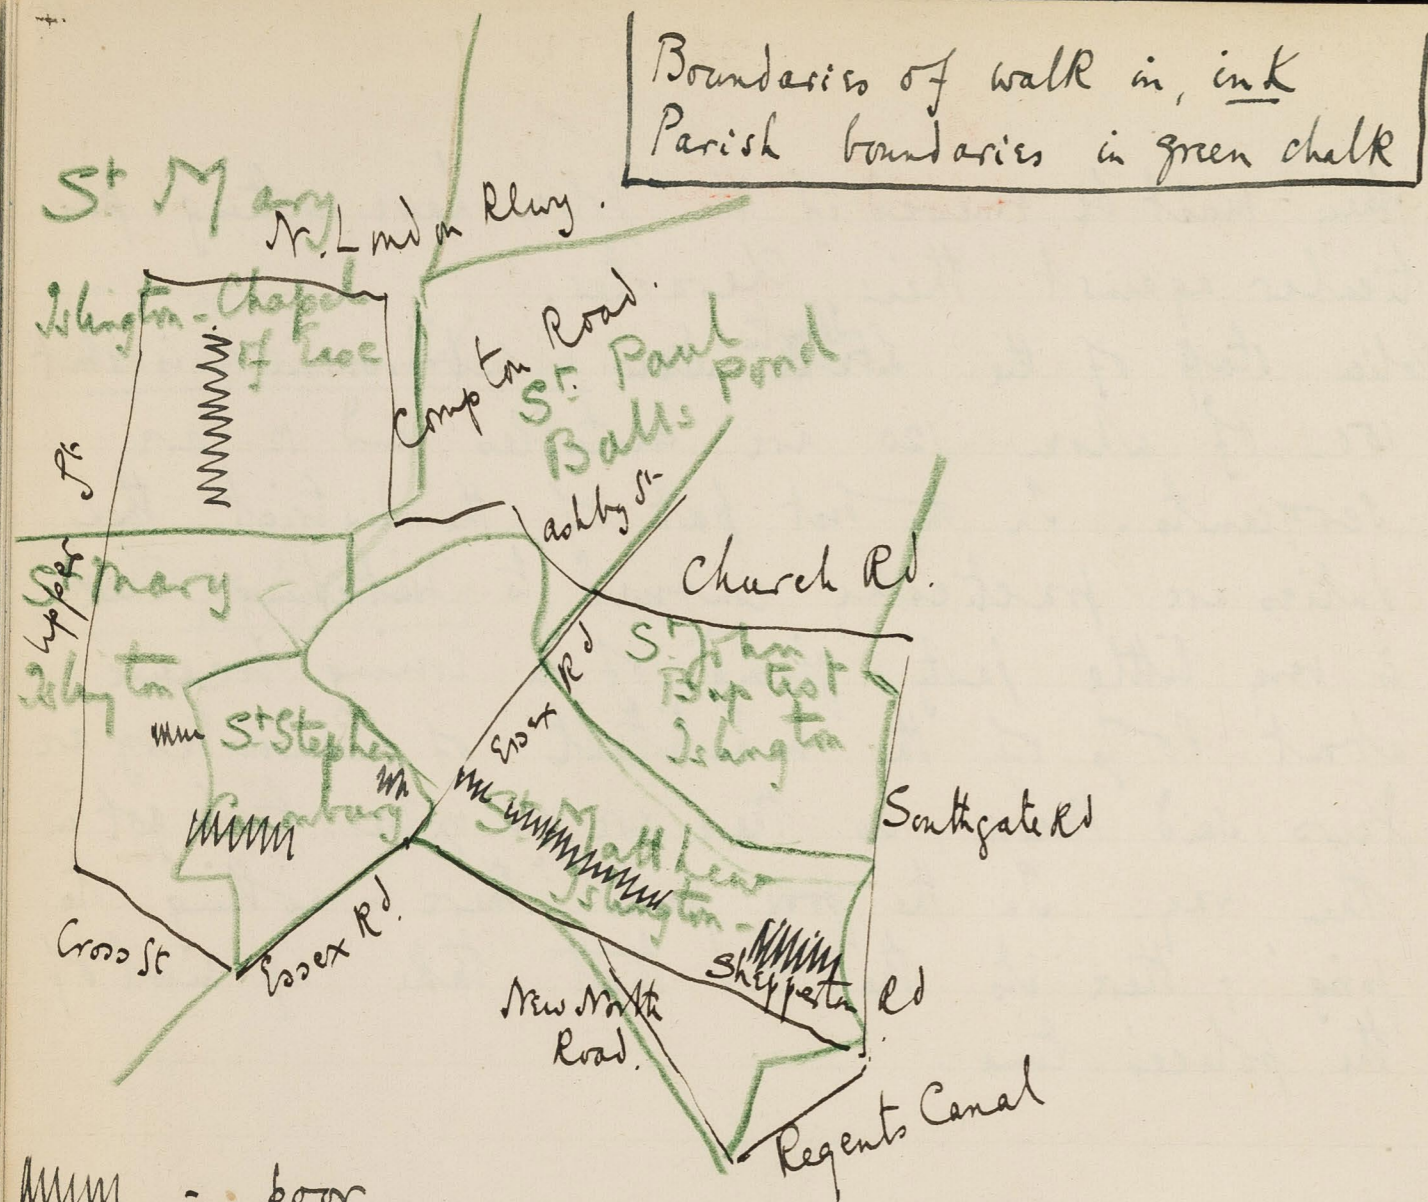 Boundaries of walk in, ink
Parish boundaries in green chalk
St Mary
N. London Rlwy.
Islington - Chapel
of Ease
Compton Road.
St. Paul
Balls pond
Upper St
ashby St
St Mary
Islington
Church Rd.
St John
Baptist
Islington
Essex Rd
St Stephen
Canonbury
St Matthew
Islington -
Southgate Rd
Cross St
Essex Rd.
Shepperton Rd
New North
Road.
Regents Canal
- poor